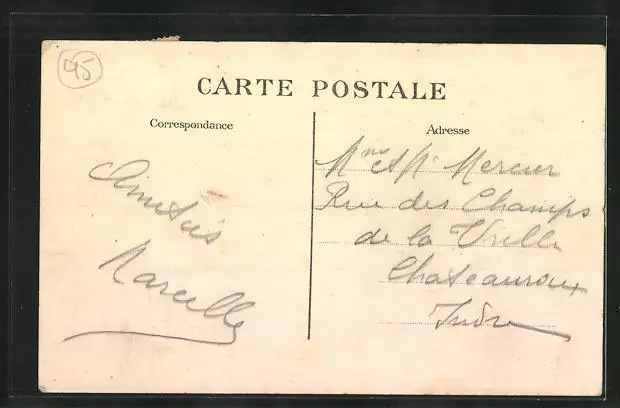 45
CARTE POSTALE
Correspondance
Adresse
Amitiés
Marcelle
Mme et Mr Mercier
Rue des Champs
de la Vrille
Chateauroux
Indre